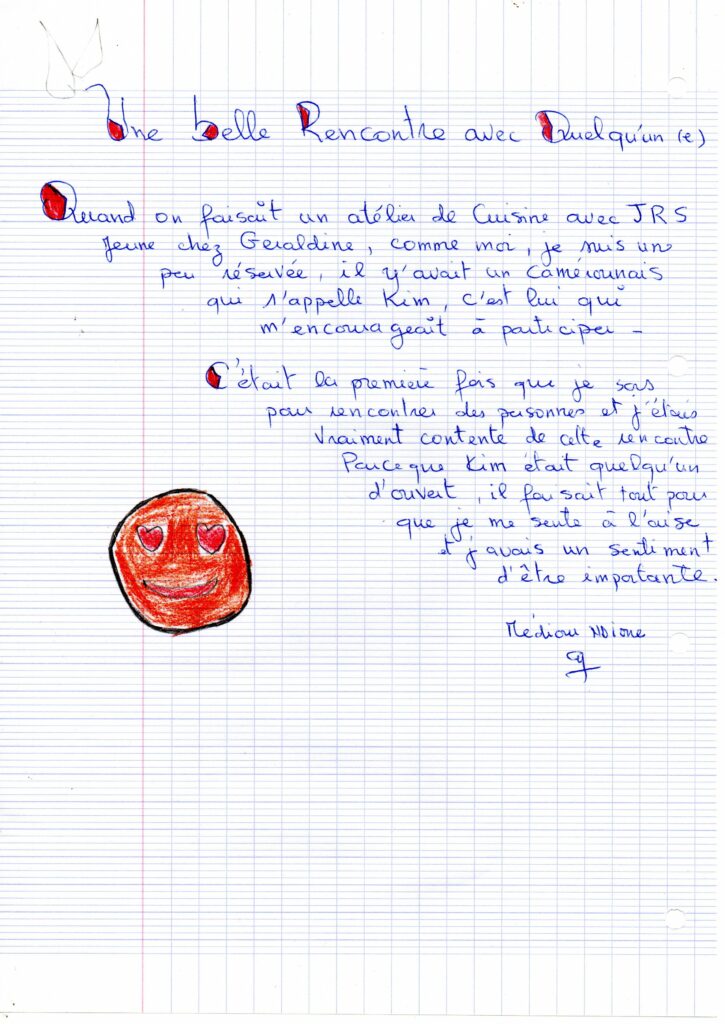 Une belle Rencontre avec Quelqu'un (e)
Quand on faisait un atélier de Cuisine avec JRS
Jeune chez Geraldine, comme moi, je suis un
peu réservée, il y'avait un camérounais
qui s'appelle Kim, c'est lui qui
m'encourageait à participer -
C'était la première fois que je sors
pour rencontrer des personnes et j'étais
vraiment contente de cette rencontre
Parceque Kim était quelqu'un
d'ouvert, il faisait tout pour
que je me sente à l'aise
et j'avais un sentiment
d'être importante.
Médiou NDione